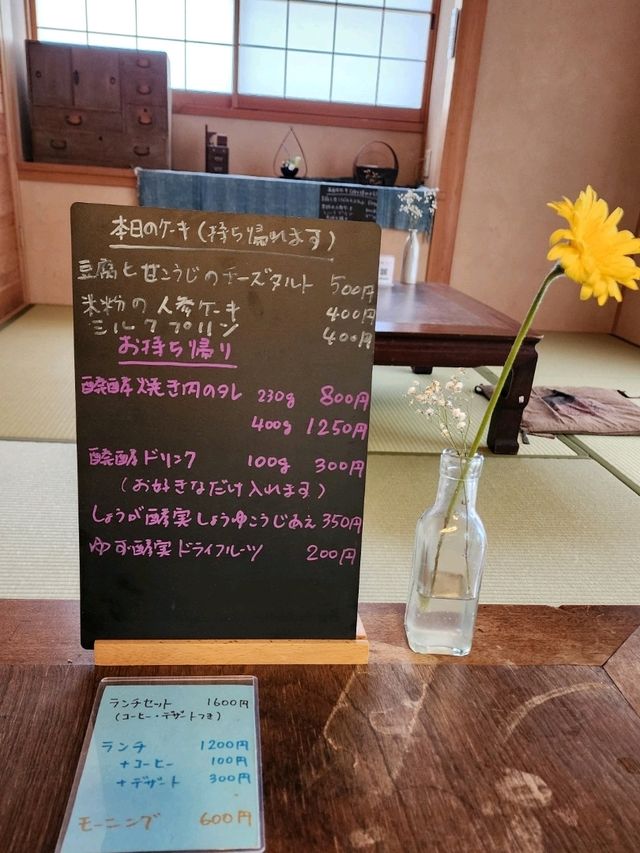 本日のケーキ(持ち帰れます)
豆腐と甘こうじのチーズタルト 500円
米粉の人参ケーキ 400円
ミルクプリン 400円
お持ち帰り
醗酵焼き肉のタレ 230g 800円
400g 1250円
醗酵ドリンク 100g 300円
(お好きなだけ入れます)
しょうが酵実しょうゆこうじあえ 350円
ゆず酵実ドライフルーツ 200円
ランチセット 1600円
(コーヒー・デザートつき)
ランチ 1200円
+コーヒー 100円
+デザート 300円
モーニング 600円